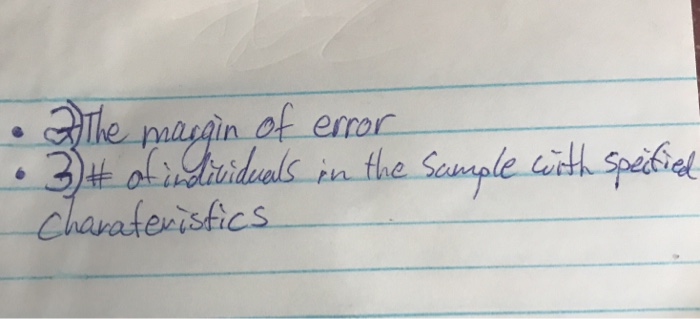 • 2) The margin of error
• 3) # of individuals in the sample with specified
charateristics